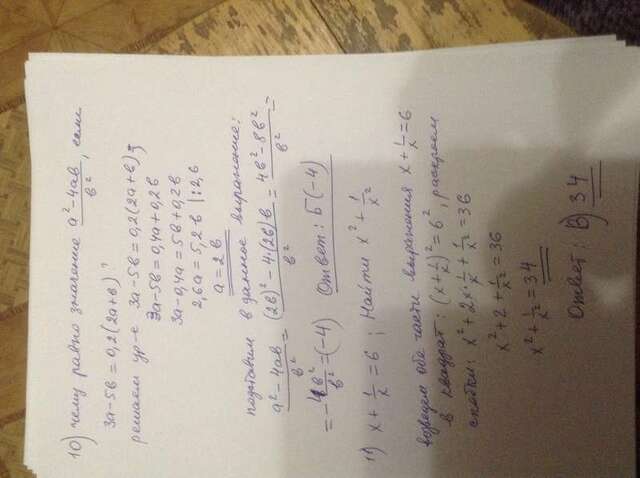 10) чему равно значение (a² - 4ab)/b², если
3a - 5b = 0,2(2a + b)?
решаем ур-е 3a - 5b = 0,2(2a + b);
3a - 5b = 0,4a + 0,2b
3a - 0,4a = 5b + 0,2b
2,6a = 5,2b |:2,6
a = 2b
подставим в данное выражение:
(a² - 4ab)/b² = ((2b)² - 4·(2b)b)/b² = (4b² - 8b²)/b² =
= -4b²/b² = (-4) Ответ: Б(-4)
11) x + 1/x = 6; Найти x² + 1/x²
возведем обе части выражения x + 1/x = 6
в квадрат: (x + 1/x)² = 6², раскроем
скобки: x² + 2x·1/x + 1/x² = 36
x² + 2 + 1/x² = 36
x² + 1/x² = 34
Ответ: В) 34